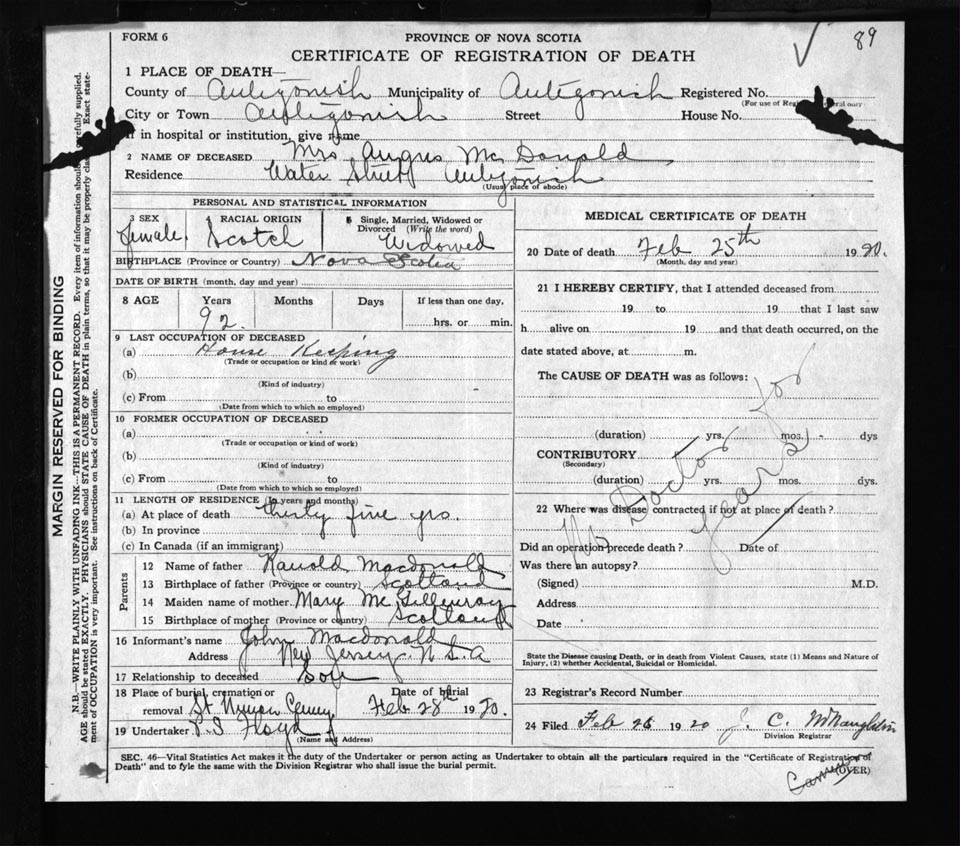 FORM 6
PROVINCE OF NOVA SCOTIA
89
CERTIFICATE OF REGISTRATION OF DEATH
1 PLACE OF DEATH—
County of Antigonish Municipality of Antigonish Registered No.
(For use of Reg
City or Town Antigonish Street House No.
If in hospital or institution, give name
2 NAME OF DECEASED Mrs Angus McDonald
Residence Water Street Antigonish
(Usual place of abode)
PERSONAL AND STATISTICAL INFORMATION
3 SEX 4 RACIAL ORIGIN 5 Single, Married, Widowed or
Divorced (Write the word)
female Scotch Widowed
BIRTHPLACE (Province or Country) Nova Scotia
DATE OF BIRTH (month, day and year)
8 AGE Years Months Days If less than one day,
92. hrs. or min.
9 LAST OCCUPATION OF DECEASED
(a) House Keeping
(Trade or occupation or kind of work)
(b)
(Kind of industry)
(c) From to
(Date from which to which so employed)
10 FORMER OCCUPATION OF DECEASED
(a)
(Trade or occupation or kind of work)
(b)
(Kind of industry)
(c) From to
(Date from which to which so employed)
11 LENGTH OF RESIDENCE (In years and months)
(a) At place of death thirty five yrs.
(b) In province
(c) In Canada (if an immigrant)
Parents
12 Name of father Ranold Macdonald
13 Birthplace of father (Province or country) Scotland
14 Maiden name of mother Mary McGillivray
15 Birthplace of mother (Province or country) Scotland
16 Informant's name John Macdonald
Address New Jersey U.S.A
17 Relationship to deceased Son
18 Place of burial, cremation or removal St Ninian Cemy Date of burial Feb 28th 1920.
19 Undertaker P.S Floyd
(Name and Address)
MEDICAL CERTIFICATE OF DEATH
20 Date of death Feb 25th 1920.
(Month, day and year)
21 I HEREBY CERTIFY, that I attended deceased from
19 to 19 that I last saw
h alive on 19 and that death occurred, on the
date stated above, at m.
The CAUSE OF DEATH was as follows:
No Doctor for years
(duration) yrs. mos. dys
CONTRIBUTORY
(Secondary)
(duration) yrs. mos. dys.
22 Where was disease contracted if not at place of death?
Did an operation precede death? Date of
Was there an autopsy?
(Signed) M.D.
Address
Date
State the Disease causing Death, or in death from Violent Causes, state (1) Means and Nature of
Injury, (2) whether Accidental, Suicidal or Homicidal.
23 Registrar's Record Number
24 Filed Feb 26 1920 J. C. McNaughton
Division Registrar
SEC. 46—Vital Statistics Act makes it the duty of the Undertaker or person acting as Undertaker to obtain all the particulars required in the "Certificate of Registration of
Death" and to fyle the same with the Division Registrar who shall issue the burial permit.
(OVER)
MARGIN RESERVED FOR BINDING
N.B.—WRITE PLAINLY WITH UNFADING INK—THIS IS A PERMANENT RECORD. Every item of information should be carefully supplied.
AGE should be stated EXACTLY. PHYSICIANS should STATE CAUSE OF DEATH in plain terms, so that it may be properly cla Exact state-
ment of OCCUPATION is very important. See instructions on back of Certificate.